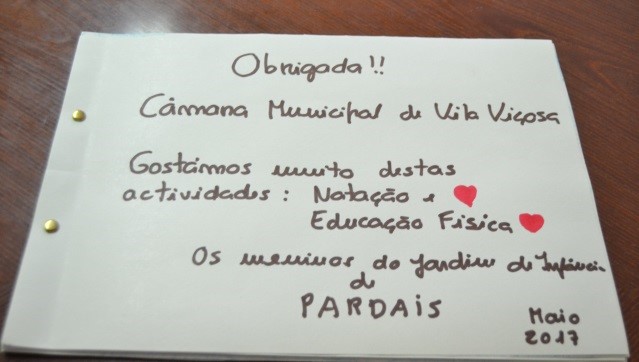 Obrigada!!
Câmara Municipal de Vila Viçosa
Gostámos muito destas
actividades: Natação e
Educação Fisica
Os meninos do Jardim de Infância
de
PARDAIS
Maio
2017